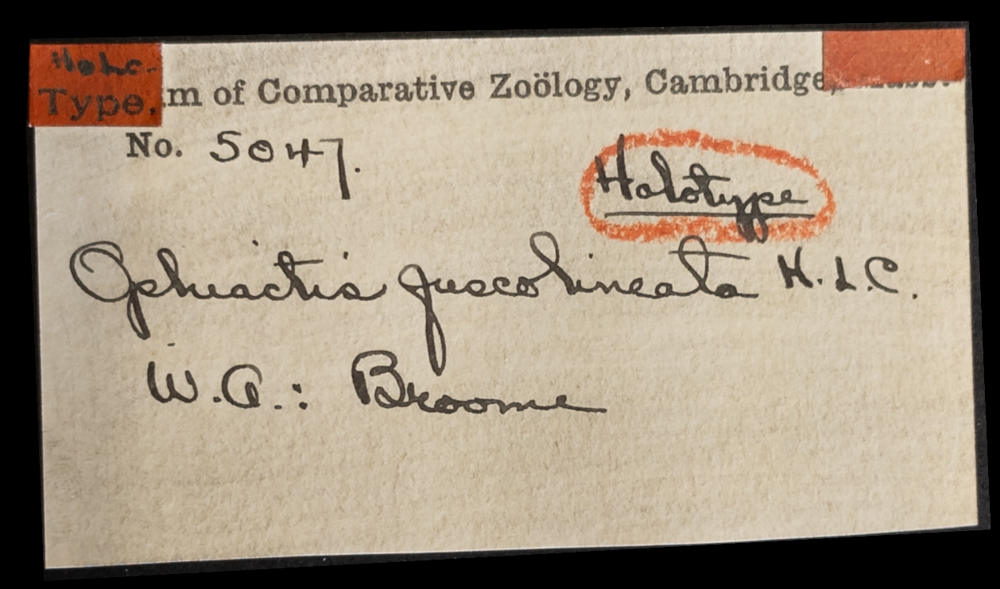 Holo-
Type.
m of Comparative Zoölogy, Cambridge,
No. 5047.
Holotype
Ophiactis fuscolineata H.L.C.
W.A.: Broome